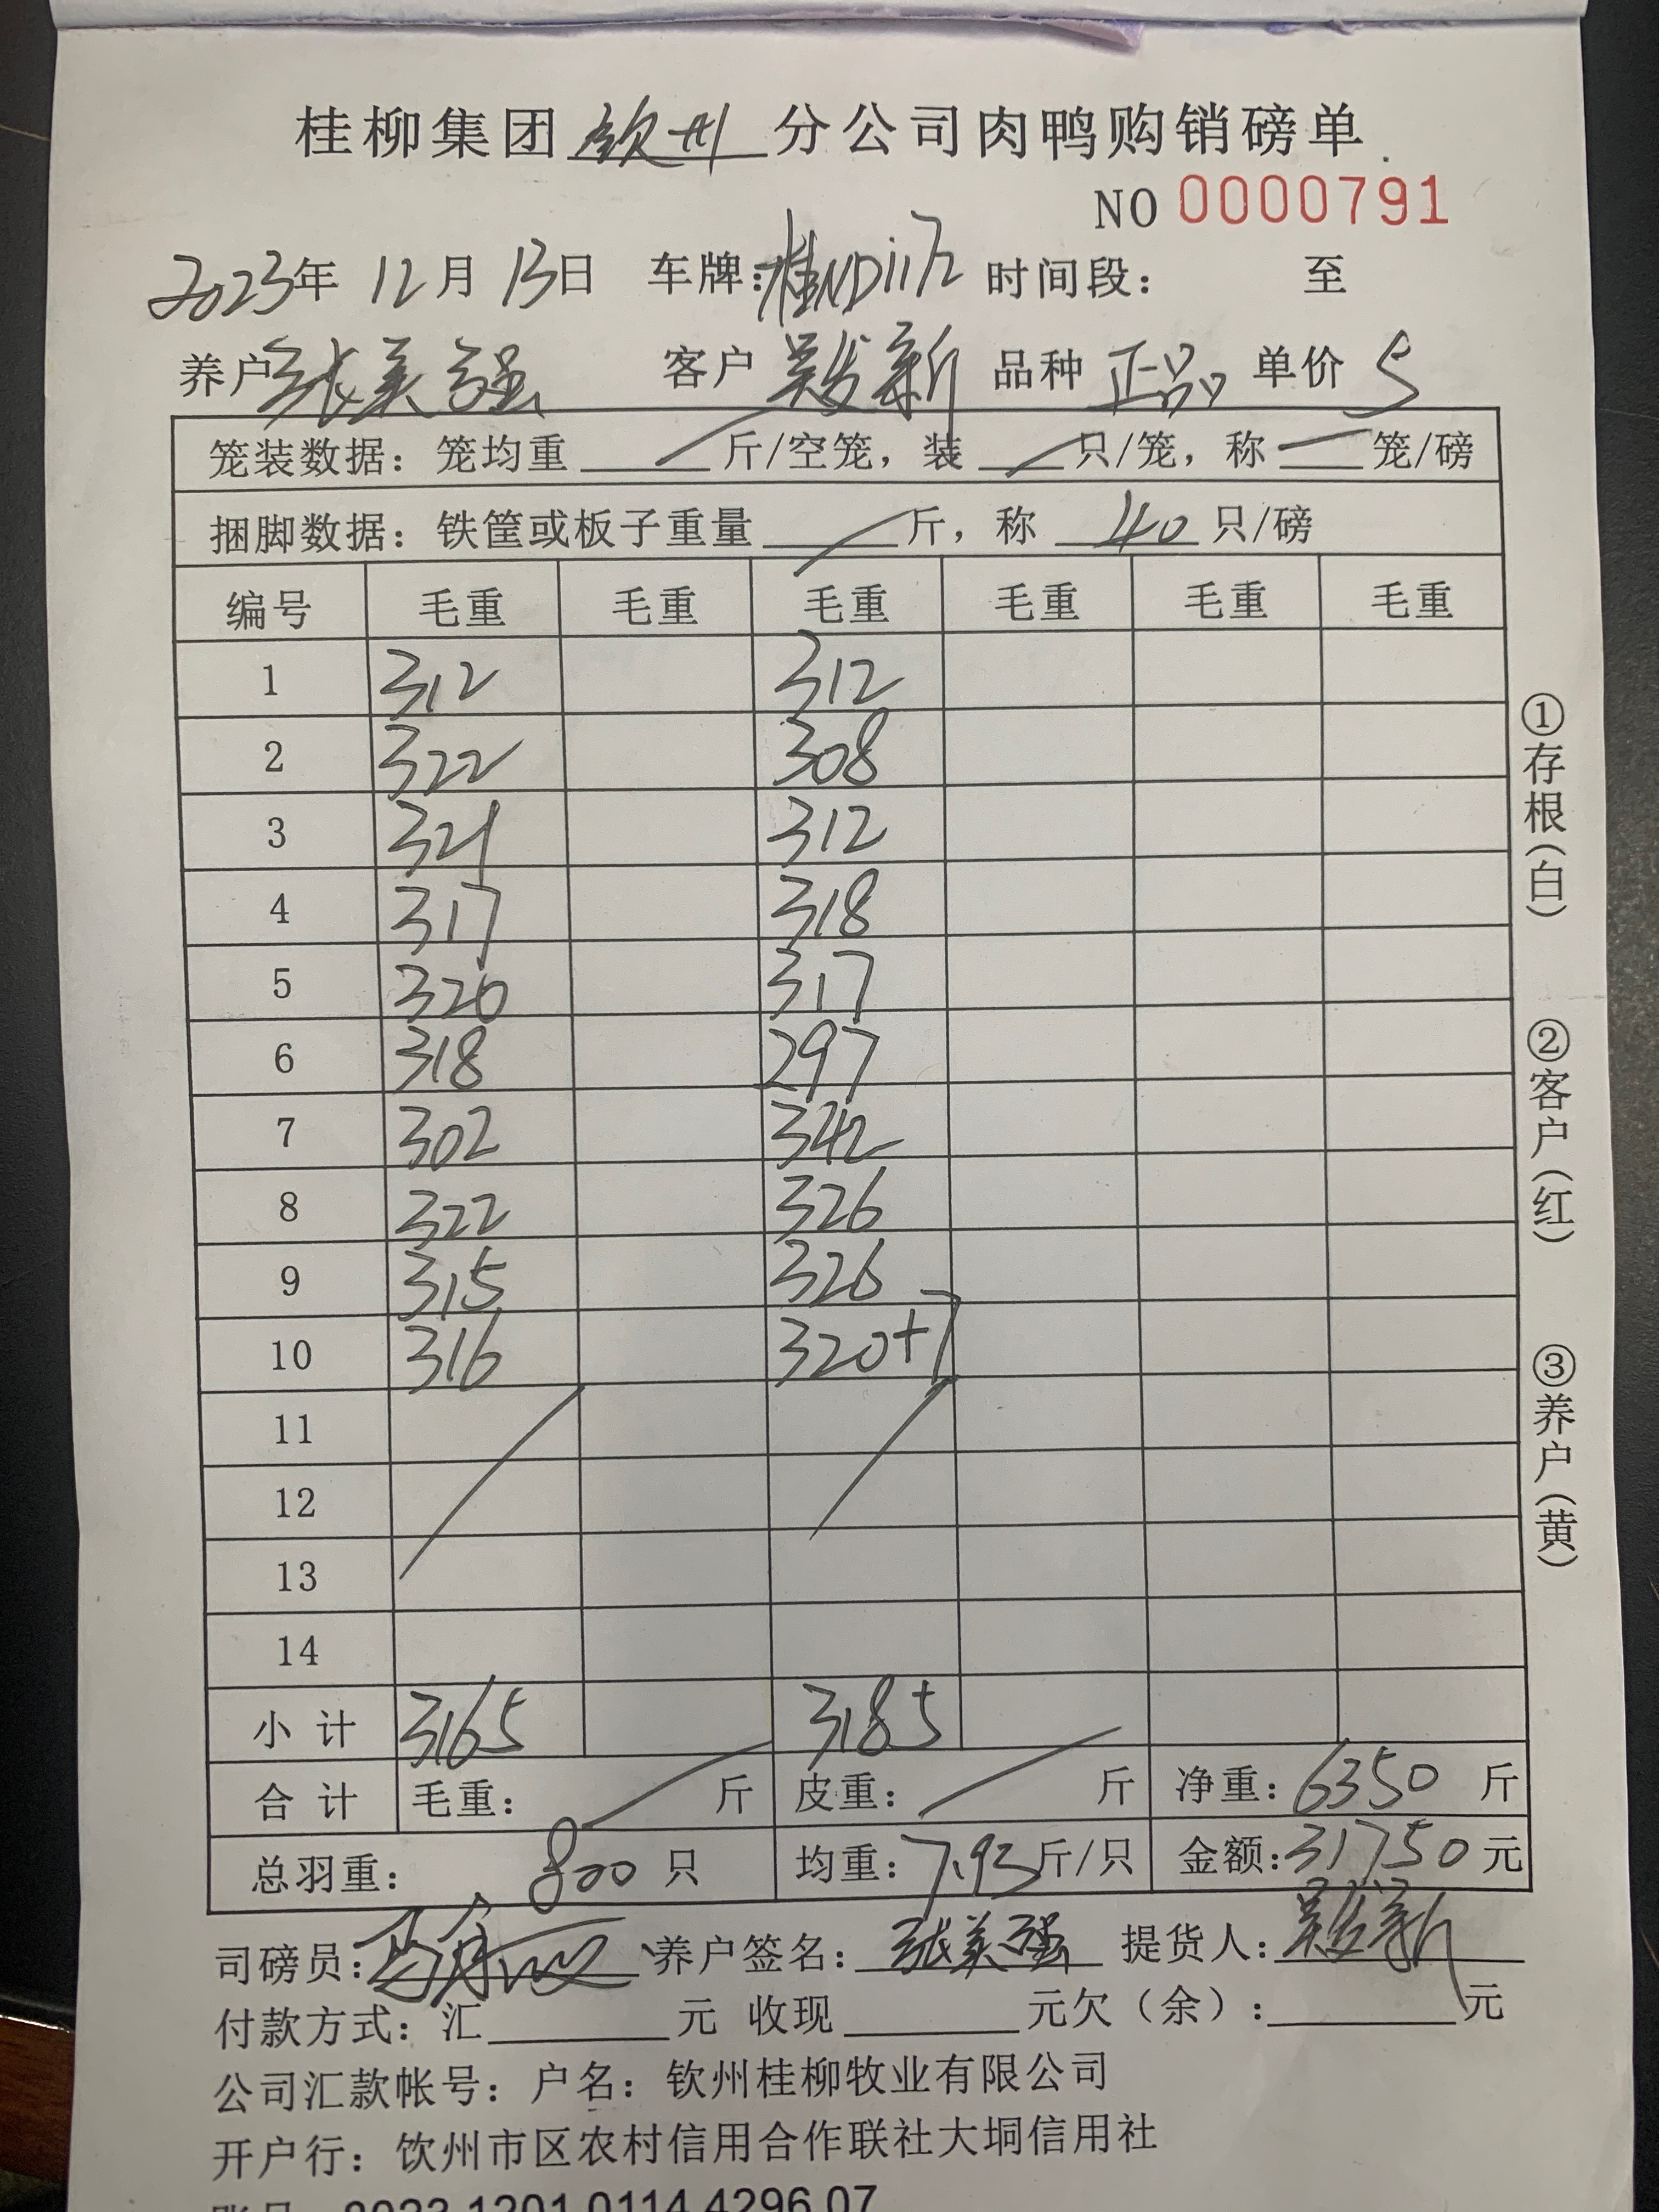 桂柳集团 钦州 分公司肉鸭购销磅单
NO 0000791
2023年 12月 13日 车牌:桂ND1172 时间段: 至
养户 张美强 客户 吴发新 品种 正品 单价 5
笼装数据: 笼均重 斤/空笼, 装 只/笼, 称 笼/磅
捆脚数据: 铁筐或板子重量 斤, 称 40 只/磅
编号 毛重 毛重 毛重 毛重 毛重 毛重
1 312 312
2 322 308
3 321 312
4 317 318
5 320 317
6 318 297
7 302 342
8 322 326
9 315 326
10 316 320+7
11
12
13
14
小计 3165 3185
合计 毛重: 斤 皮重: 斤 净重: 6350 斤
总羽重: 800 只 均重: 7.93斤/只 金额:31750元
司磅员: 养户签名: 张美强 提货人: 吴发新
付款方式: 汇 元 收现 元欠(余): 元
公司汇款帐号: 户名: 钦州桂柳牧业有限公司
开户行: 钦州市区农村信用合作联社大垌信用社
①存根(白)
②客户(红)
③养户(黄)